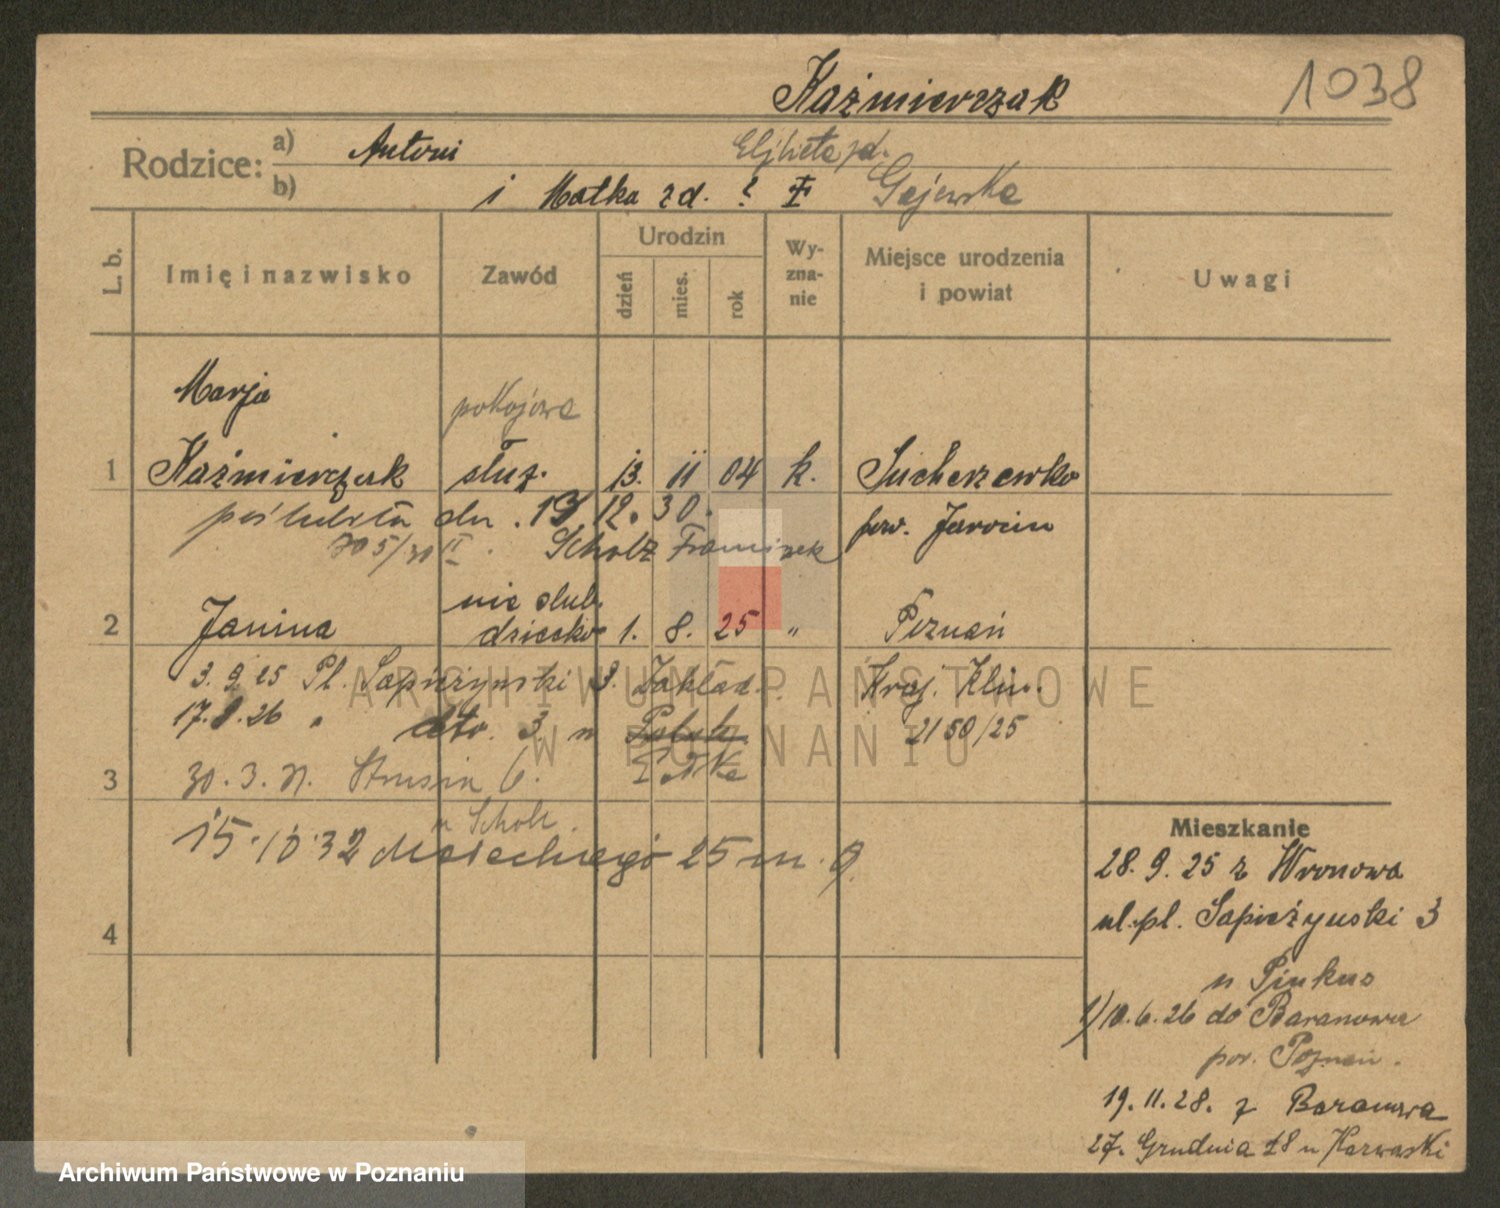 Kaźmierczak
1038
Rodzice:
a) Antoni Elżbieta zd.
b) i Matka zd. ? Gajewska
L. b.
Imię i nazwisko
Zawód
Urodzin
dzień
mies.
rok
Wy-
zna-
nie
Miejsce urodzenia
i powiat
Uwagi
Marja
pokojowa
1 Kaźmierczak służ. 13. 11 04 k. Sucherzewko
poślubiła dn. 13 12. 30. pow. Jarocin
705/30 II Scholz Franciszek
nie ślub.
2 Janina dziecko 1. 8. 25 " Poznań
3. 9 25 Pl. Sapieżyński 3. Zakład. Kraj. Klin.
17. 26 dto. 3 u 2150/25
3 30. 3. 31. Strusia 6.
u Scholz.
15.10.32 25 m. 9
4
Mieszkanie
28. 9. 25 z Wronowa
ul. pl. Sapieżyński 3
u Pinkus
1) 10. 6. 26 do Baranowa
pow. Poznań.
19. 11. 28. z Baranowa
27. Grudnia 18 u Karwaski
ARCHIWUM PAŃSTWOWE
W POZNANIU
Archiwum Państwowe w Poznaniu